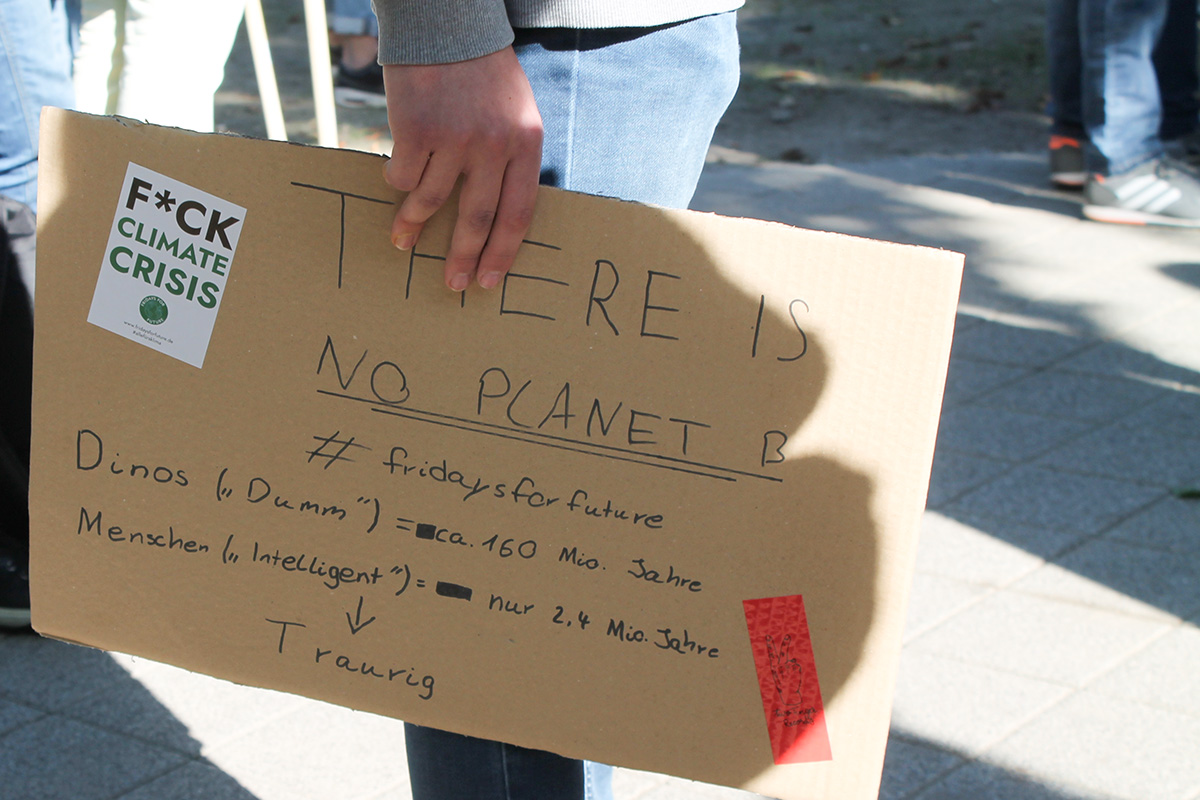 F*CK
CLIMATE
CRISIS
www.fridaysforfuture.de
#allefürsklima
THERE IS
NO PLANET B
# fridaysforfuture
Dinos („Dumm“) = ca. 160 Mio. Jahre
Menschen („Intelligent“) = nur 2,4 Mio. Jahre
↓
Traurig